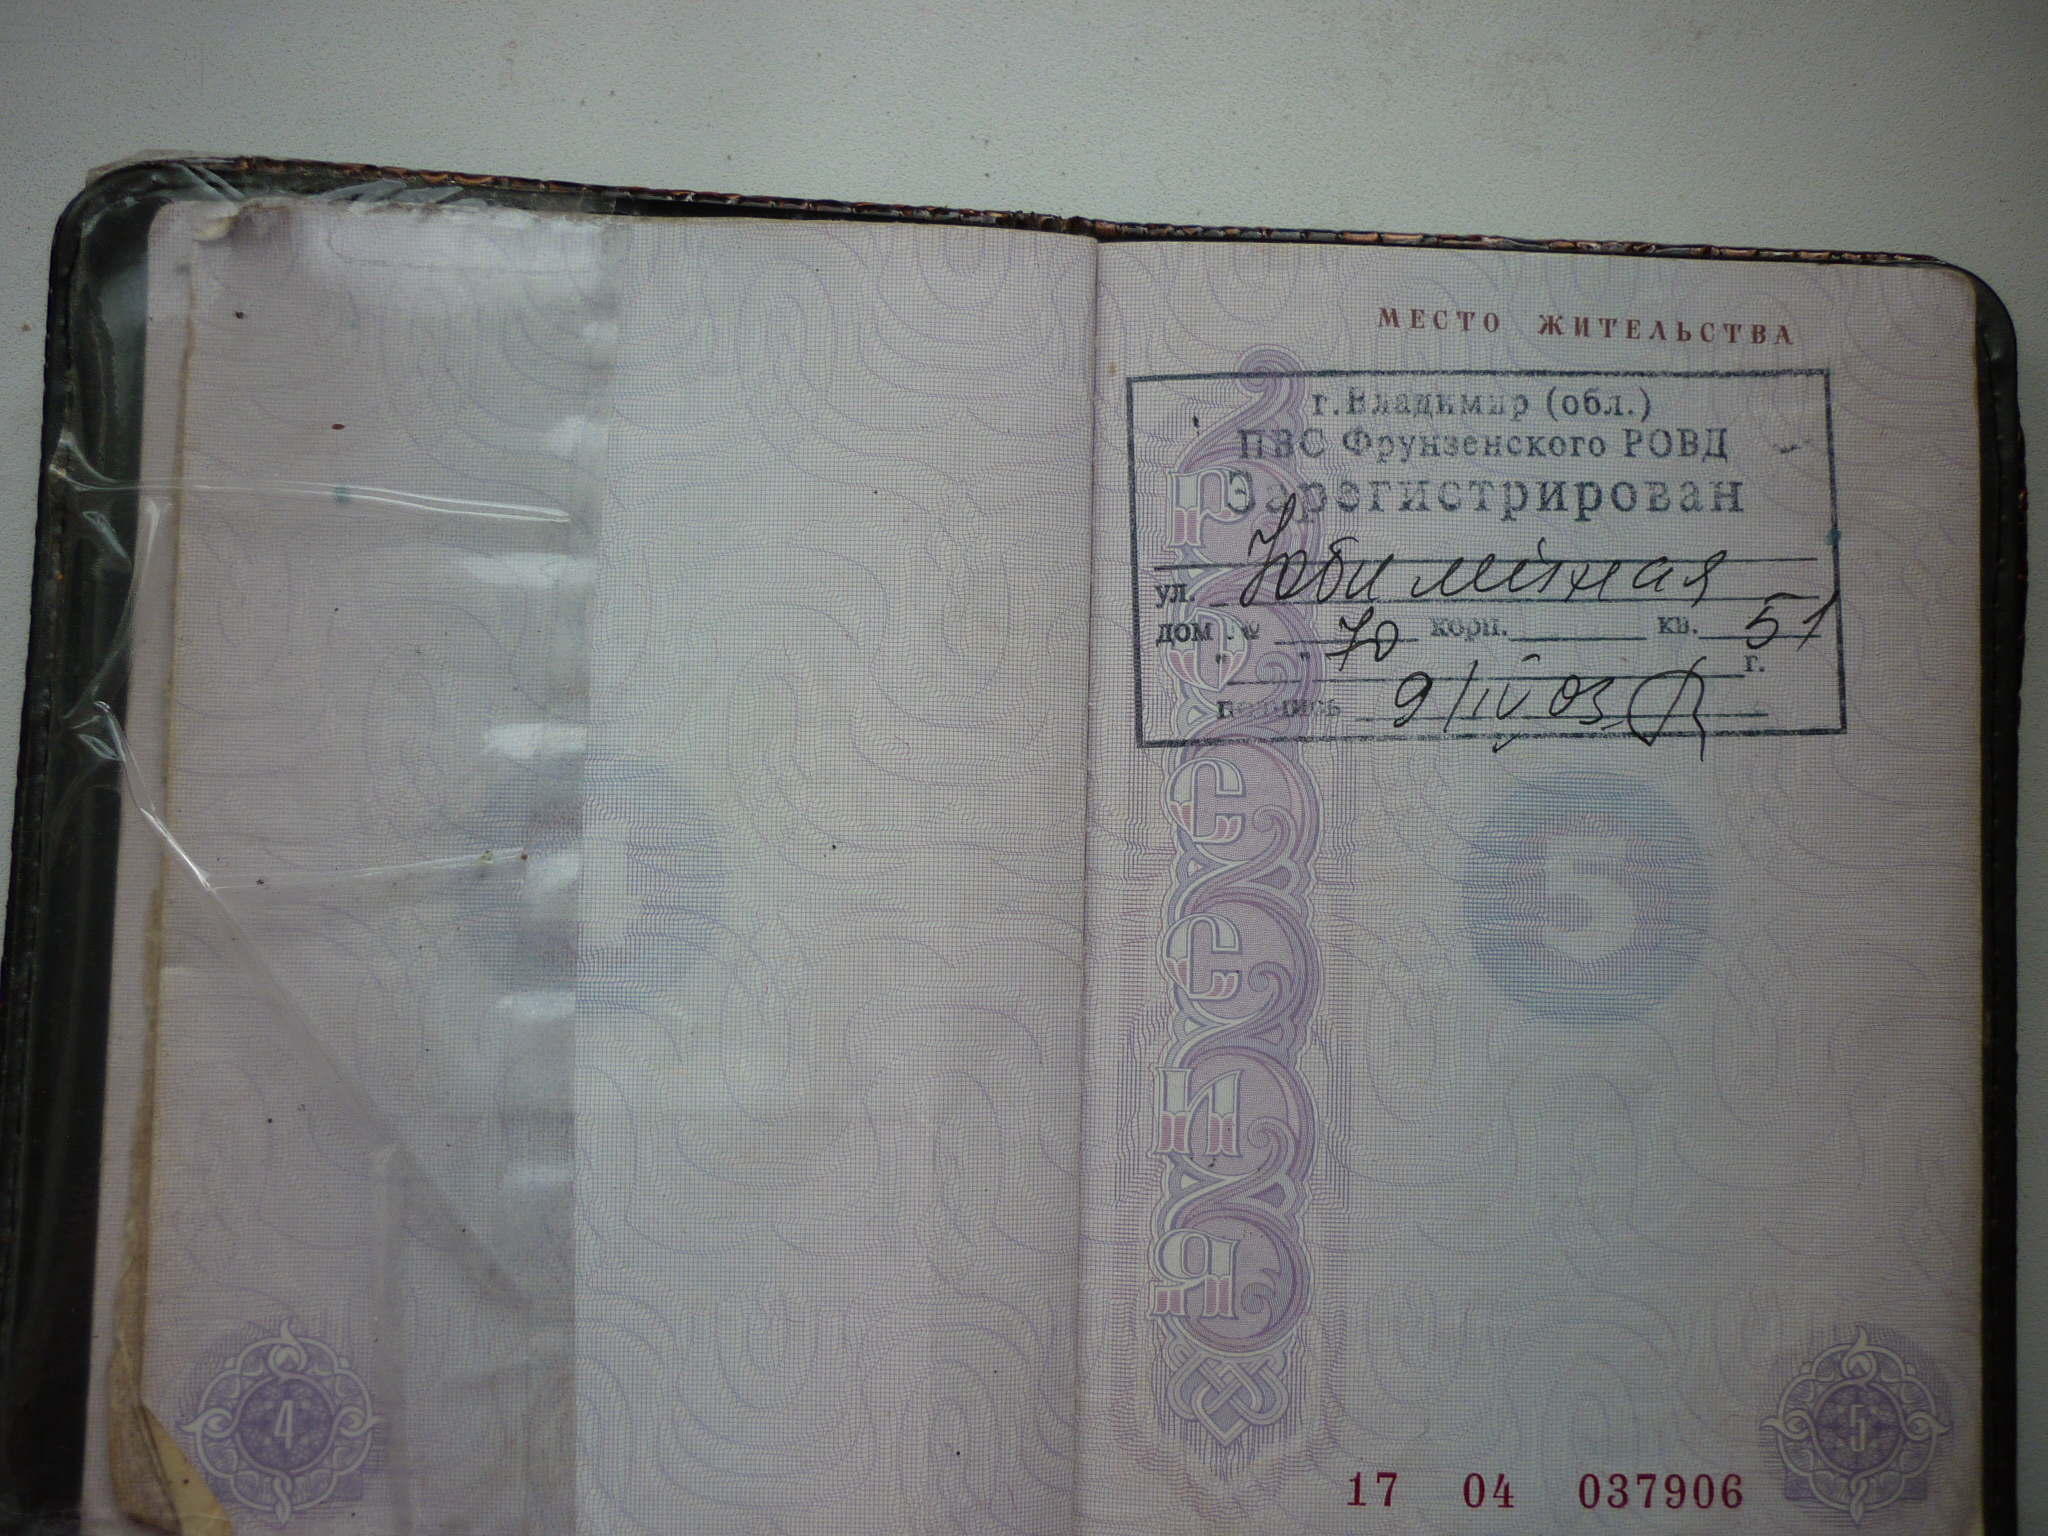 МЕСТО ЖИТЕЛЬСТВА
г.Владимир (обл.)
ПВС Фрунзенского РОВД
Зарегистрирован
ул. Юбилейная
дом № 70 корп. кв. 51
" " г.
подпись 9/IV 03
РОССИЯ
5
4
5
17 04 037906